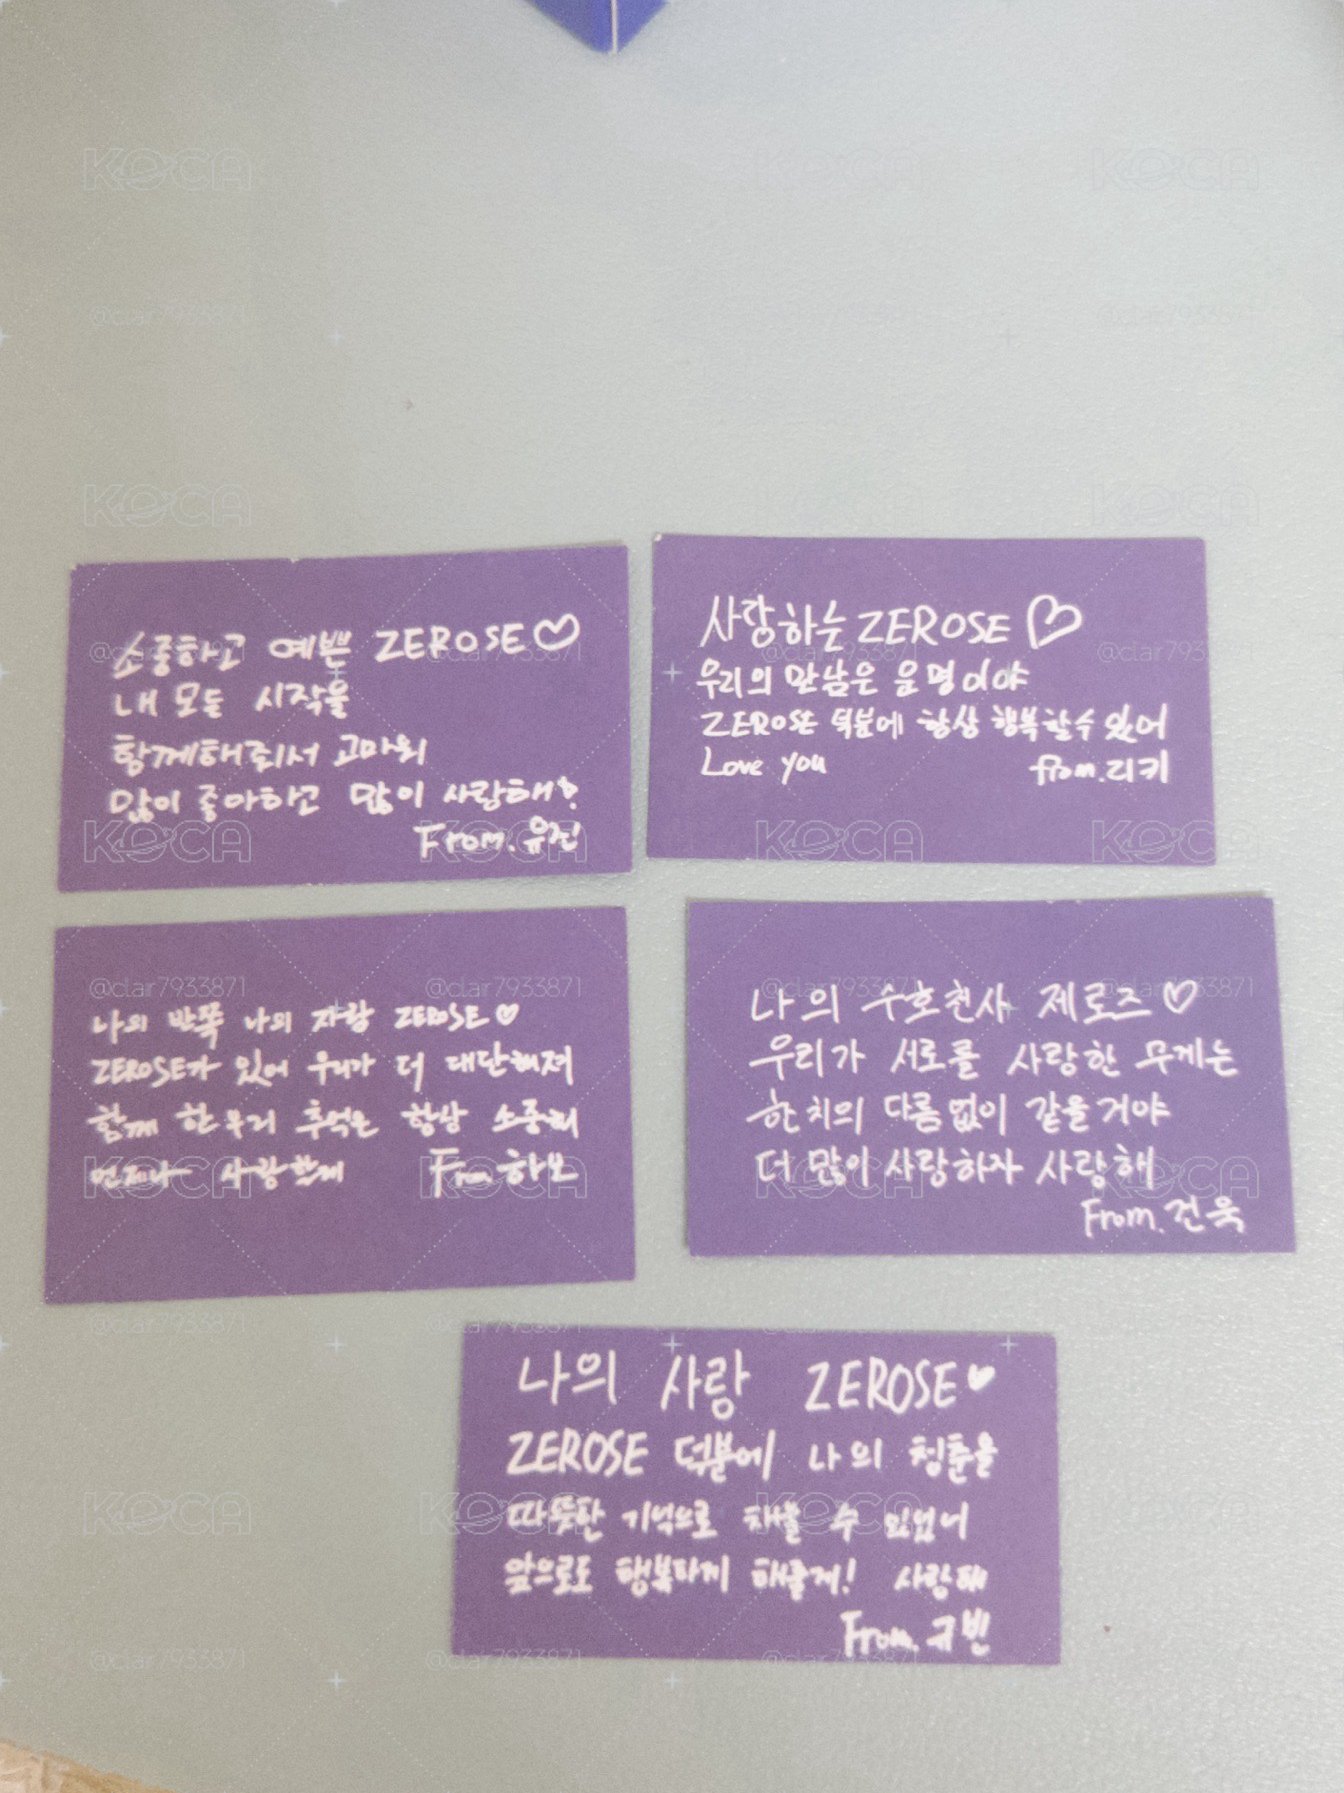 소중하고 예쁜 ZEROSE♡
내 모든 시작을
함께해줘서 고마워
많이 좋아하고 많이 사랑해
From. 유진
사랑하는 ZEROSE ♡
우리의 만남은 운명이야
ZEROSE 덕분에 항상 행복할 수 있어
Love you from. 리키
나의 반쪽 나의 자랑 ZEROSE ♡
ZEROSE가 있어 우리가 더 대단해져
함께 한 우리 추억은 항상 소중해
언제나 사랑할게 From 하오
나의 수호천사 제로즈 ♡
우리가 서로를 사랑한 무게는
한치의 다름없이 같을거야
더 많이 사랑하자 사랑해
From. 건욱
나의 사랑 ZEROSE♥
ZEROSE 덕분에 나의 청춘을
따뜻한 기억으로 채울 수 있었어
앞으로도 행복하게 해줄게! 사랑해
From. 규빈
KOCA
@clar7933871